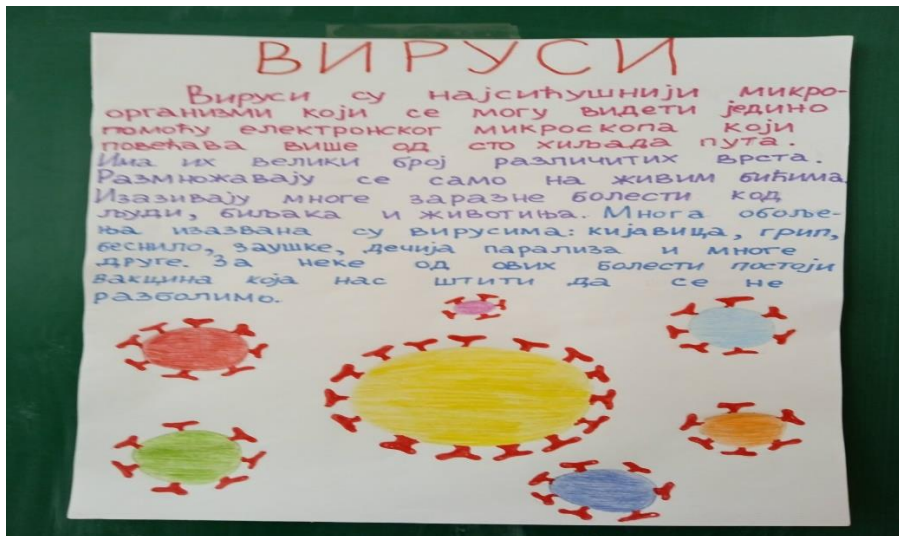 ВИРУСИ
Вируси су најсићушнији микро-
организми који се могу видети једино
помоћу електронског микроскопа који
повећава више од сто хиљада пута.
Има их велики број различитих врста.
Размножавају се само на живим бићима.
Изазивају многе заразне болести код
људи, биљака и животиња. Многа обоље-
ња изазвана су вирусима: кијавица, грип,
беснило, заушке, дечија парализа и многе
друге. За неке од ових болести постоји
вакцина која нас штити да се не
разболимо.